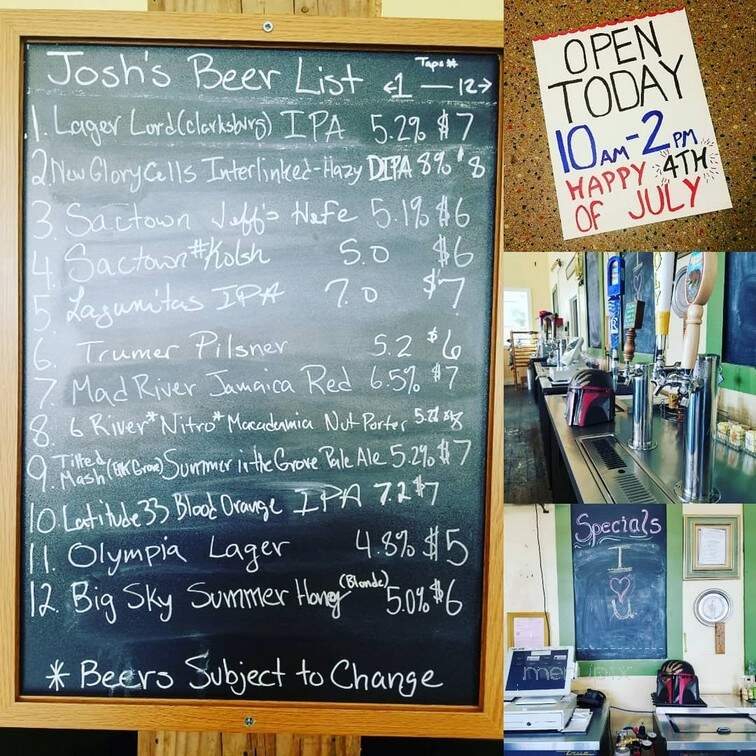 Josh's Beer List
Taps #
<1 — 12→
1. Lager Lord (Clarksburg) IPA 5.2% $7
2. New Glory Cells Interlinked-Hazy DIPA 8% $8
3. Sactown Jeff's Hefe 5.1% $6
4. Sactown #Kolsh 5.0 $6
5. Lagunitas IPA 7.0 $7
6. Trumer Pilsner 5.2 $6
7. Mad River Jamaica Red 6.5% $7
8. 6 River *Nitro* Macadamia Nut Porter
9. Tilted Mash (Elk Grove) Summer in the Grove Pale Ale 5.2% $7
10. Latitude 33 Blood Orange IPA 7.2 $7
11. Olympia Lager 4.8% $5
12. Big Sky Summer Honey (Blonde) 5.0% $6
* Beers Subject to Change
OPEN
TODAY
10AM-2PM
HAPPY 4TH
OF JULY
Specials
I
♡
U
menupix